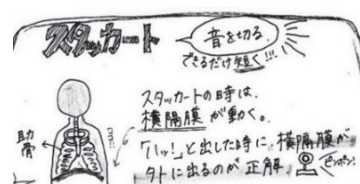 スタッカート
音を切る。
できるだけ短く!!!
スタッカートの時は、
横隔膜が動く。
肋骨
「ハッ!」と出した時に、横隔膜が
外に出るのが正解
ピンポン!